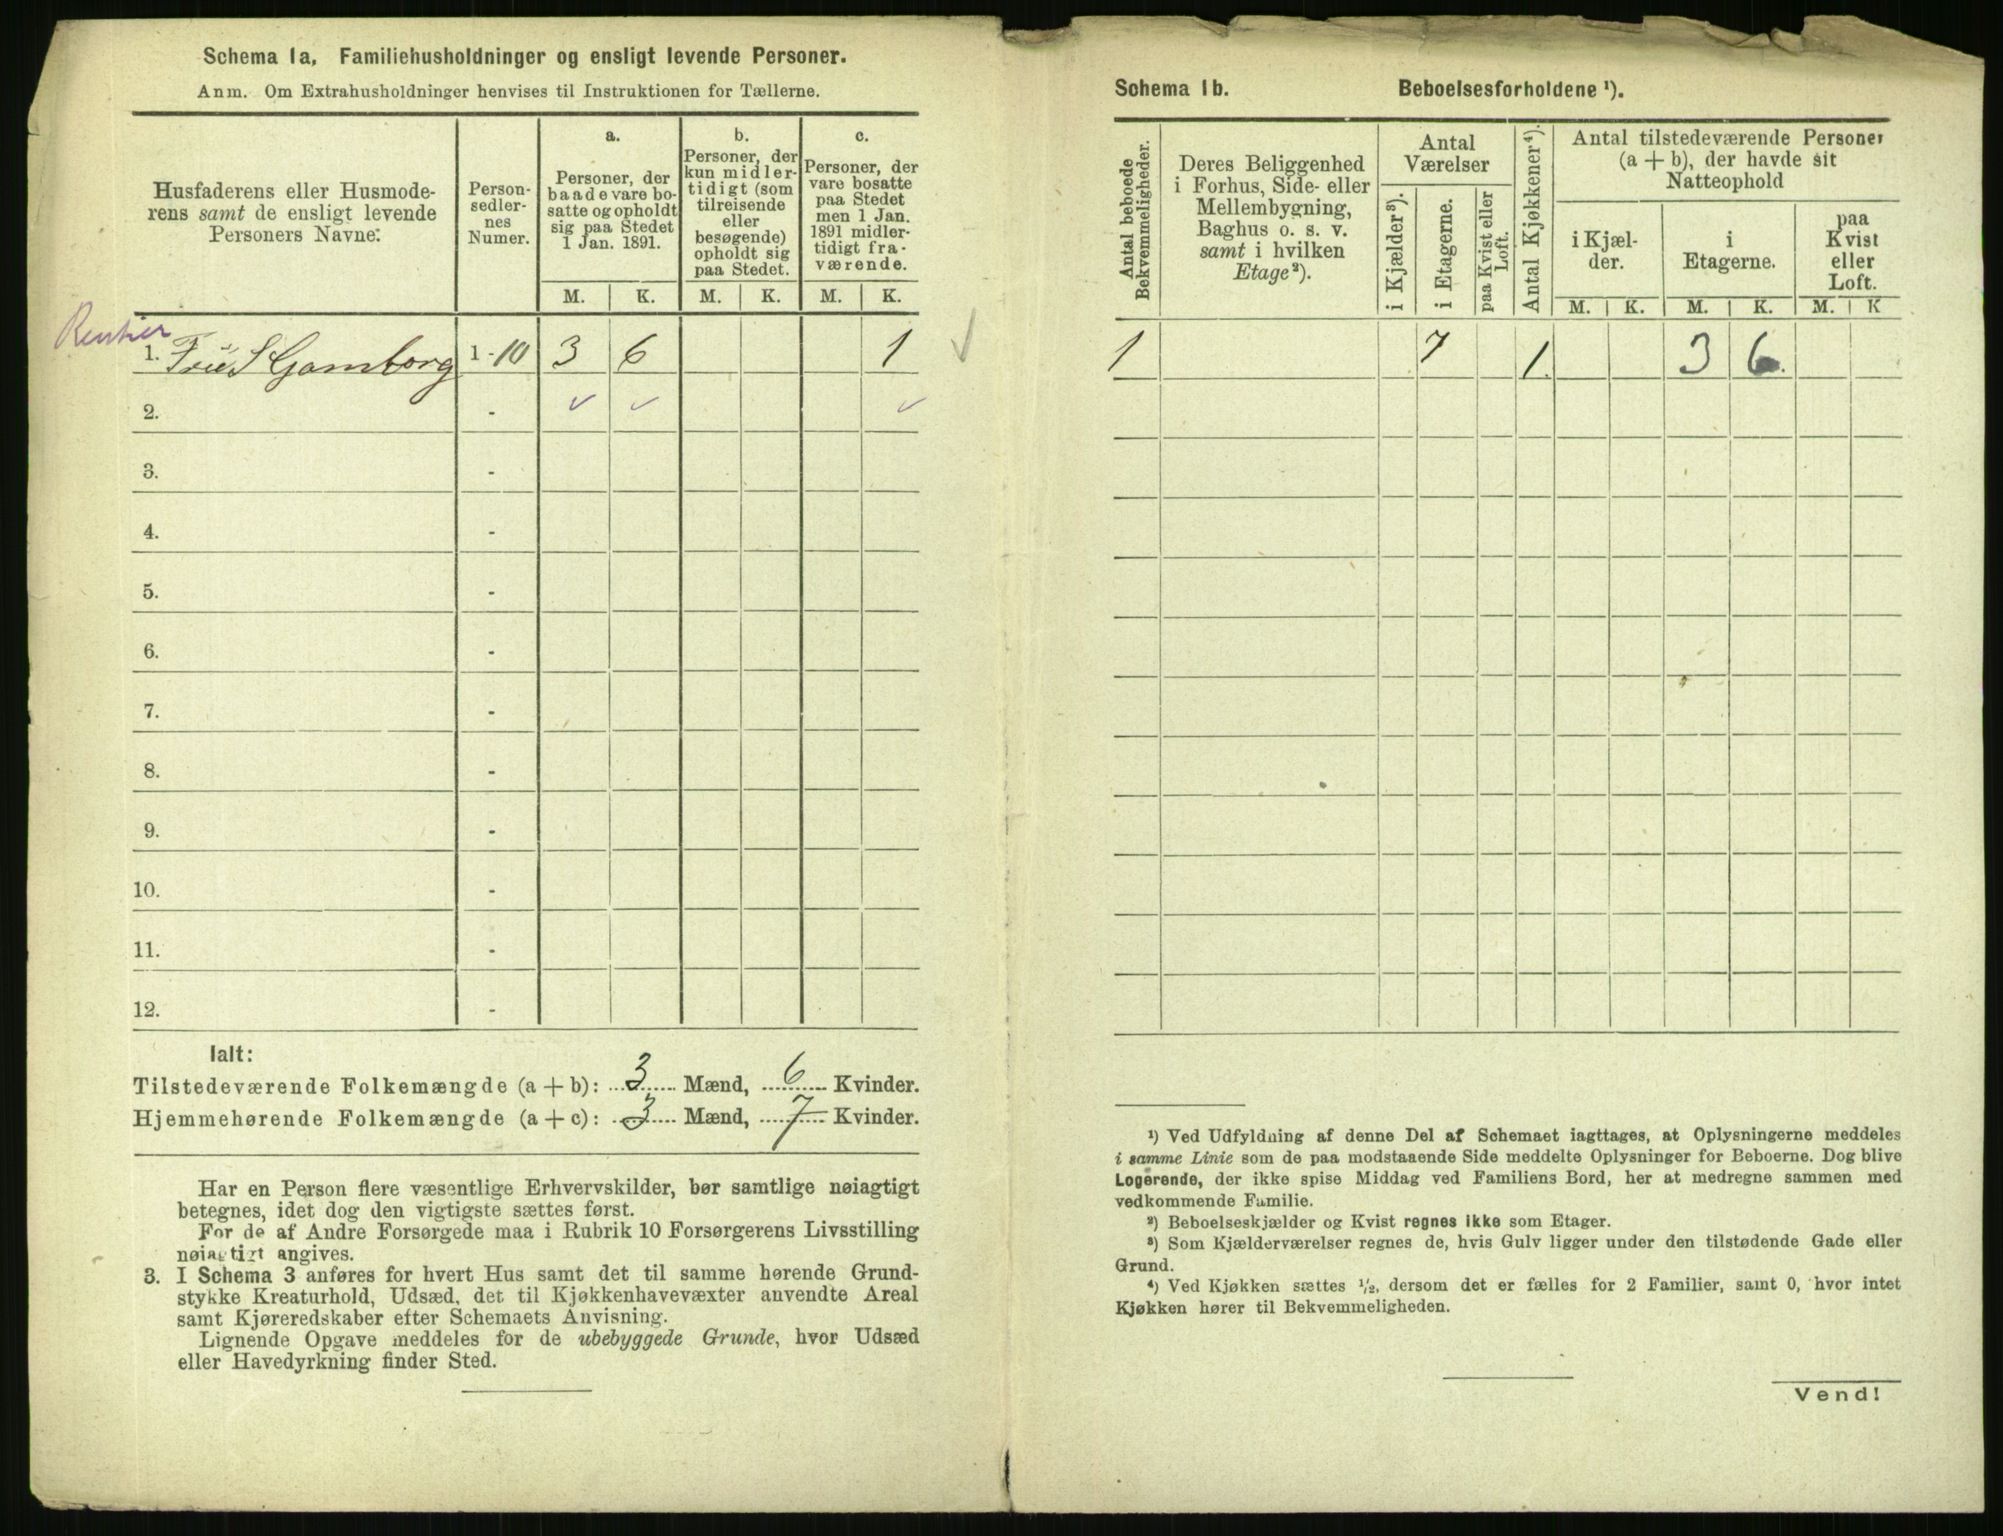 Schema 1a. Familiehusholdninger og ensligt levende Personer.
Anm. Om Extrahusholdninger henvises til Instruktionen for Tællerne.
Husfaderens eller Husmode-
rens samt de ensligt levende
Personers Navne:
Person-
sedler-
nes
Numer.
a.
Personer, der
baade vare bo-
satte og opholdt
sig paa Stedet
1 Jan. 1891.
b.
Personer, der
kun midler-
tidigt (som
tilreisende
eller
besøgende)
opholdt sig
paa Stedet.
c.
Personer, der
vare bosatte
paa Stedet
men 1 Jan.
1891 midler-
tidigt fra-
værende.
M. K. M. K. M. K.
Rentier
1. S Gamborg 1 - 10 3 6 1
2. -
3. -
4. -
5. -
6. -
7. -
8. -
9. -
10. -
11. -
12. -
Ialt:
Tilstedeværende Folkemængde (a + b): 3 Mænd, 6 Kvinder.
Hjemmehørende Folkemængde (a + c): 3 Mænd, 7 Kvinder.
Har en Person flere væsentlige Erhvervskilder, bør samtlige nøiagtigt
betegnes, idet dog den vigtigste sættes først.
For de af Andre Forsørgede maa i Rubrik 10 Forsørgerens Livsstilling
nøiagtigt angives.
3. I Schema 3 anføres for hvert Hus samt det til samme hørende Grund-
stykke Kreaturhold, Udsæd, det til Kjøkkenhavevæxter anvendte Areal
samt Kjøreredskaber efter Schemaets Anvisning.
Lignende Opgave meddeles for de ubebyggede Grunde, hvor Udsæd
eller Havedyrkning finder Sted.
Schema 1b. Beboelsesforholdene ¹).
Antal beboede
Bekvemmeligheder.
Deres Beliggenhed
i Forhus, Side- eller
Mellembygning,
Baghus o. s. v.
samt i hvilken
Etage²).
Antal
Værelser
i Kjælder³).
i Etagerne.
paa Kvist eller
Loft.
Antal Kjøkkener⁴).
Antal tilstedeværende Personer
(a + b), der havde sit
Natteophold
i Kjæl-
der.
i
Etagerne.
paa
Kvist
eller
Loft.
M. K. M. K. M. K
1 7 1 3 6
¹) Ved Udfyldning af denne Del af Schemaet iagttages, at Oplysningerne meddeles
i samme Linie som de paa modstaaende Side meddelte Oplysninger for Beboerne. Dog blive
Logerende, der ikke spise Middag ved Familiens Bord, her at medregne sammen med
vedkommende Familie.
²) Beboelseskjælder og Kvist regnes ikke som Etager.
³) Som Kjælderværelser regnes de, hvis Gulv ligger under den tilstødende Gade eller
Grund.
⁴) Ved Kjøkken sættes ½, dersom det er fælles for 2 Familier, samt 0, hvor intet
Kjøkken hører til Bekvemmeligheden.
Vend!